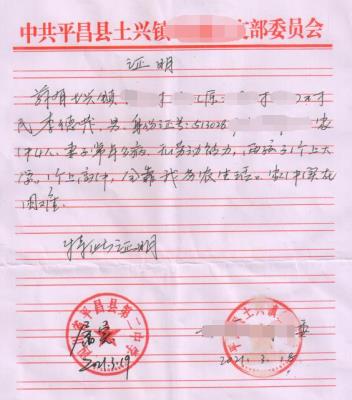 中共平昌县土兴镇 支部委员会
证明
兹有土兴镇 村 村
民 李德 男 身份证号:513028 家
中4人 妻子常年多病 无劳动能力,两孩子1个上大
学,1个上高中,全靠我务农生活。家中实在
困难。
特此证明
平昌县第二中学
属实
2021.3.19
土兴镇
2021.3.18